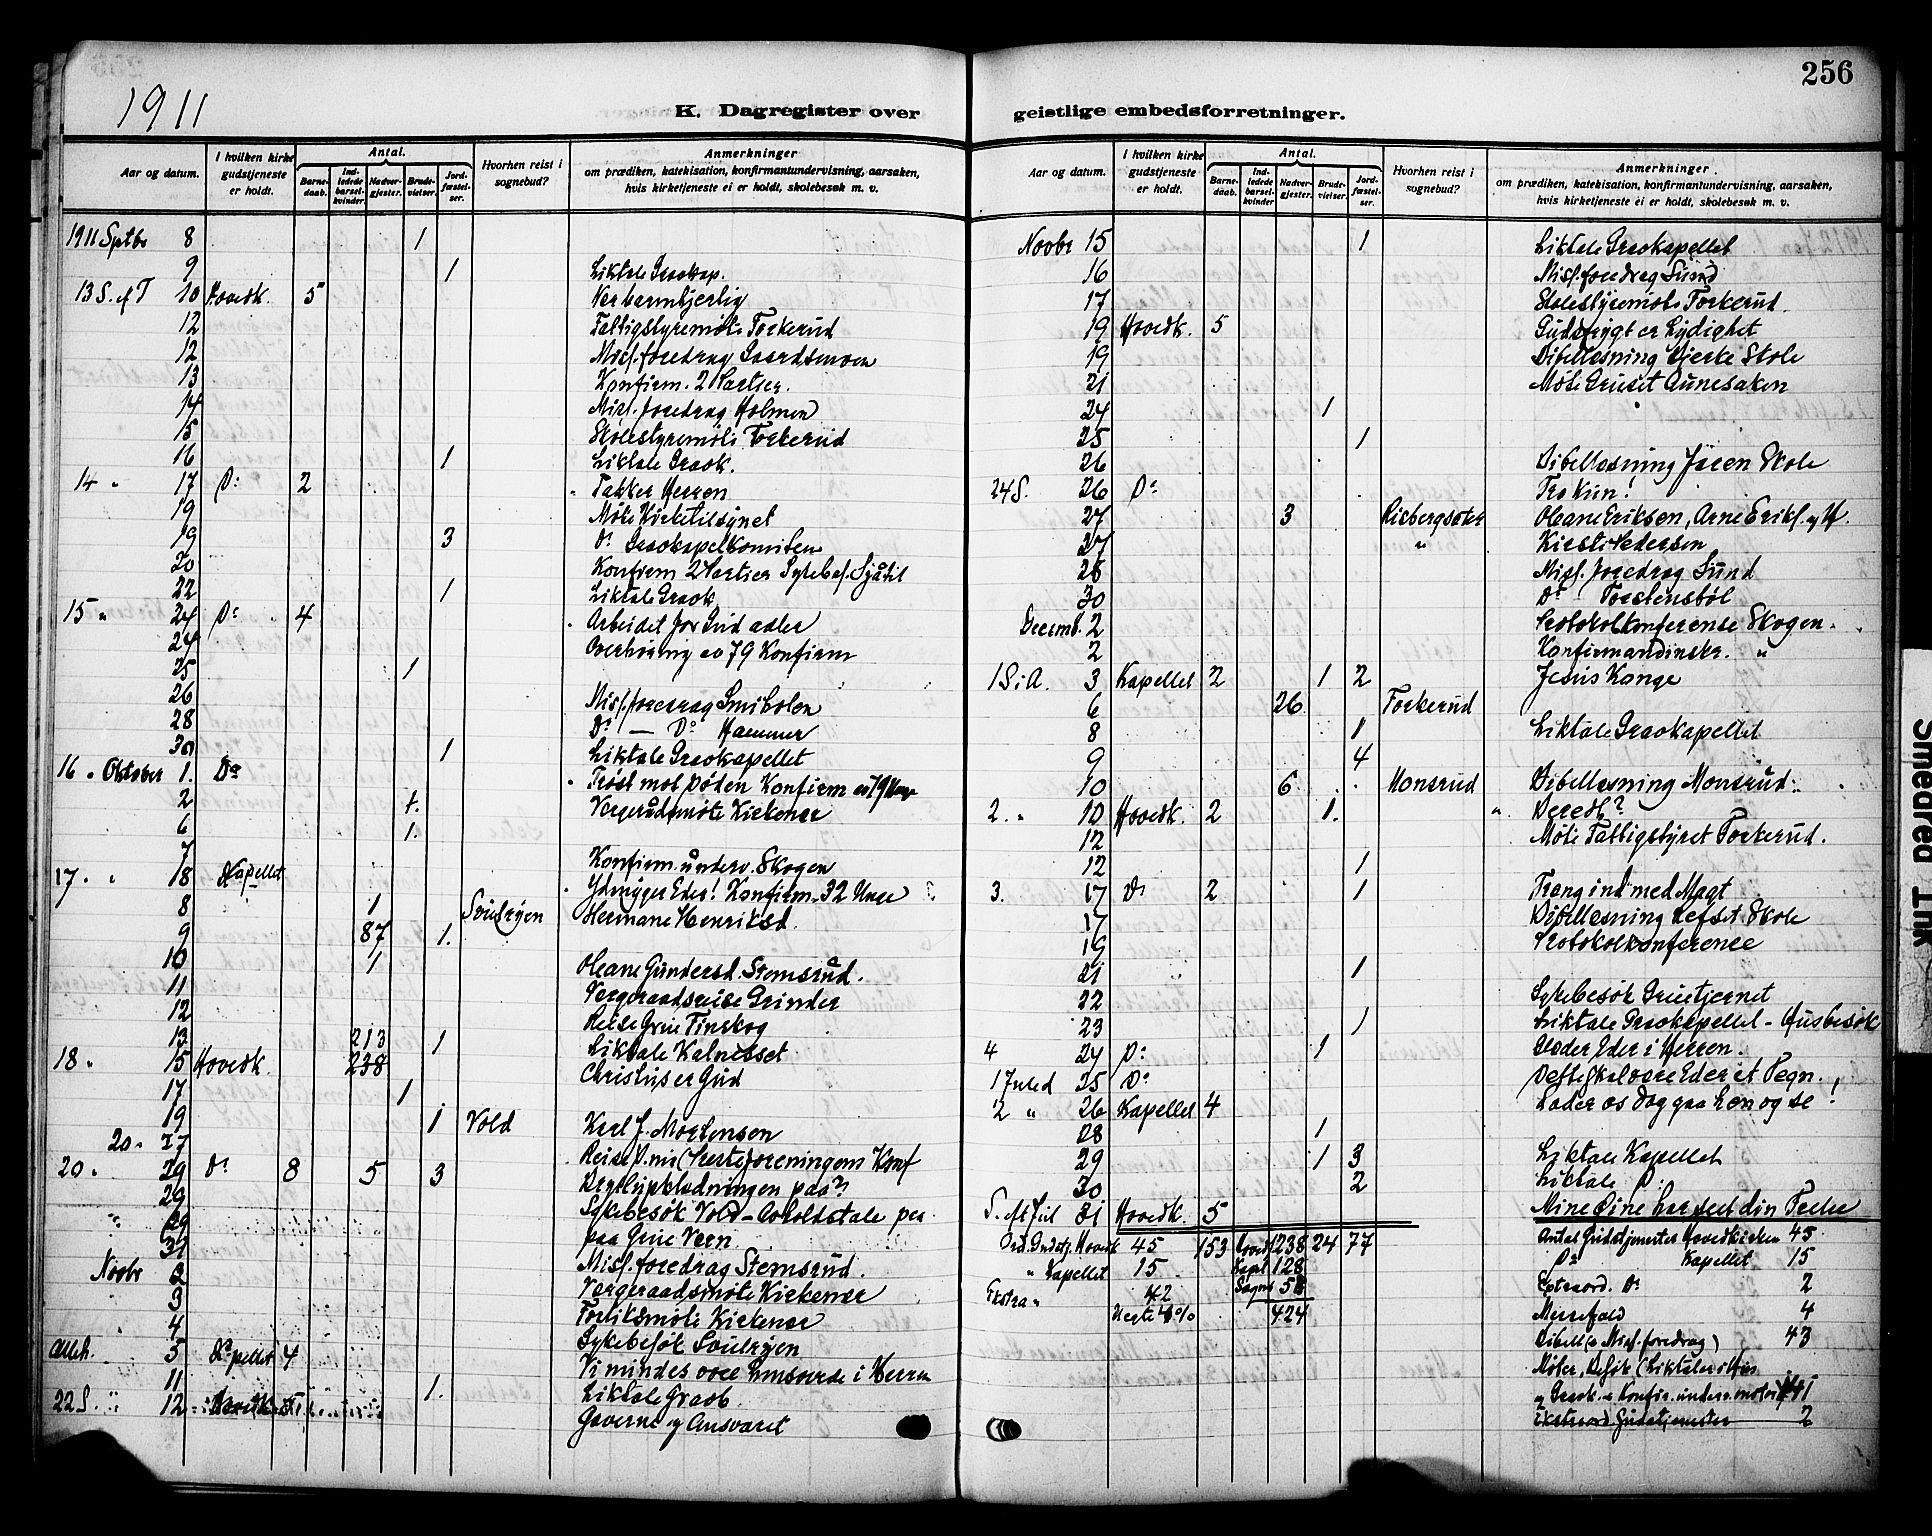 256
1911
K. Dagregister over geistlige embedsforretninger.
Aar og datum.
I hvilken kirke gudstjeneste er holdt.
Antal.
Barne-daab.
Ind-ledede barsel-kvinder
Nadver-gjester.
Brude-vielser.
Jord-fæstel-ser.
Hvorhen reist i sognebud?
Anmerkninger
om prædiken, katekisation, konfirmantundervisning, aarsaken,
hvis kirketjeneste ei er holdt, skolebesøk m. v.
1911 Sptbr 8 1
9 1 Liktale Gravkap.
13 S. ef T 10 Hovedk. 5 Ver barmhjertig
12 Fattigstyremøte Torkerud
12 Miss.foredrag
13 Konfirm. 2 Partier.
14 Miss. foredrag Holmen
15 Skolestyremøte Torkerud
16 1 Liktale Gravk.
14 " 17 Do 2 Takker Herren
19 Møte Kirketilsynet
19 3 Do Gravkapelkomiteen
20 Konfirm 2 Partier Sykebes.
22 1 Liktale Gravk
15 " 24 Do 4 Arbeidet for Gud adler
24 Overhøring av 79 Konfirm
25 1
26 Miss. foredrag
28 Do — Do Hammer
30 1 Liktale Gravkapellet
16 " Oktober 1. Do Trøst mot Døden Konfirm av 79
2 1. Vergerådsmøte Kirkenær
6 1.
7 Konfirm. underv. Skogen
17 " " 8 Kapellet Ydmyger Eder! Konfirm. 32 Unge
8 1 Svulryen Hermane Henriksd.
9 87 1.
10 1 Oleane Gundersd. Stemsrud.
11 Vergeraadsreise Grinder
12 Reise Grue Finskog
13 213 1 Liktale Kalneset
18 " 15 Hovedk. 238 Christus er Gud
17 1
19 1 Vold Karl J. Mortensen
20 " 27 Reise
20 " 29 Do 8 5 3 Bryllupsklædningen paa?
29 Sykebesøk Vold – Avholdstale
29 paa Grue Vern.
31 Miss. foredrag Stemsrud.
Novbr 2 Vergeraadsmøte Kirkenær
3 Forliksmøte Kirkenær
4 Sykebesøk Svulryen
Alleh. 5 Kapellet 4 Vi mindes vore i Herren
11 1. Liktale Gravk.
22 S. " 12 Gaverne og Ansvaret
Aar og datum.
I hvilken kirke gudstjeneste er holdt.
Antal.
Barne-daab.
Ind-ledede barsel-kvinder
Nadver-gjester.
Brude-vielser.
Jord-fæstel-ser.
Hvorhen reist i sognebud?
Anmerkninger.
om prædiken, katekisation, konfirmantundervisning, aarsaken,
hvis kirketjeneste ei er holdt, skolebesøk m. v.
Novbr 15 1 Liktale Gravkapellet
16 Miss. foredrag Sund
17 Skolestyremøte Torkerud.
19 Hovedk. 5 Gudsfrygt er Lydighet
19 Bibellæsning Bjerke Skole
21 Møte Gruset Aunesaken
24 1
25 1
26 Bibellæsning Jaren Skole
24 S. 26 Do Tro kun!
27 3 Risbergsæter Oleane Eriksen, Arne Eriks. og H.
27 " Kirsti Pedersen
28 Miss. foredrag Sund
30 Do Torstensbøl
Decemb. 2 Protokolkonferense Skogen.
2 Konfirmandinskr. "
1 S. i A. 3 Kapellet 2 1 2 Jesus Konge
6 26 Torkerud
8 1 Liktale Gravkapellet
9 4
10 6 Monsrud Bibellæsning Monsrud.
2. " 10 Hovedk. 2 1. Beredt?
12 Møte Fattigstyret Torkerud.
12 1
3. 17 Do 2 1 Træng ind med Magt
17 Bibellæsning Skole
19 Protokolkonference
21 1
22 Sykebesøk Gruetjernet
23 1 Liktale Gravkapellet – Husbesøk
4 24 Do 1 Glæder Eder i Herren.
1 Juled 25 Do Dette skal være Eder et Tegn.
2 " 26 Kapellet 4 Lader os dog gaa hen og se!
28 1
29 1 3 Liktale Kapellet
30 2 Liktale Do.
S. eft Jul 31 Hovedk. 5 Mine Øine har seet din Frelse
Ord. Gudstj. Hovedk 45 153 Hoved 238 24 77 Antal Gudstjenester Hovedkirken 45
" Kapellet 15 Kapel 128 Do Kapellet 15
Ekstra " 42 Sogne 58 Extraord. Do 2
424 Messefald 4
Bibell (o Miss. foredrag) 43
Møter, Besøk (Liktaler i Hus
og Gravk. o Konfir. underv. møter
Ekstraord Gudstjenester 2
Smedred Ink